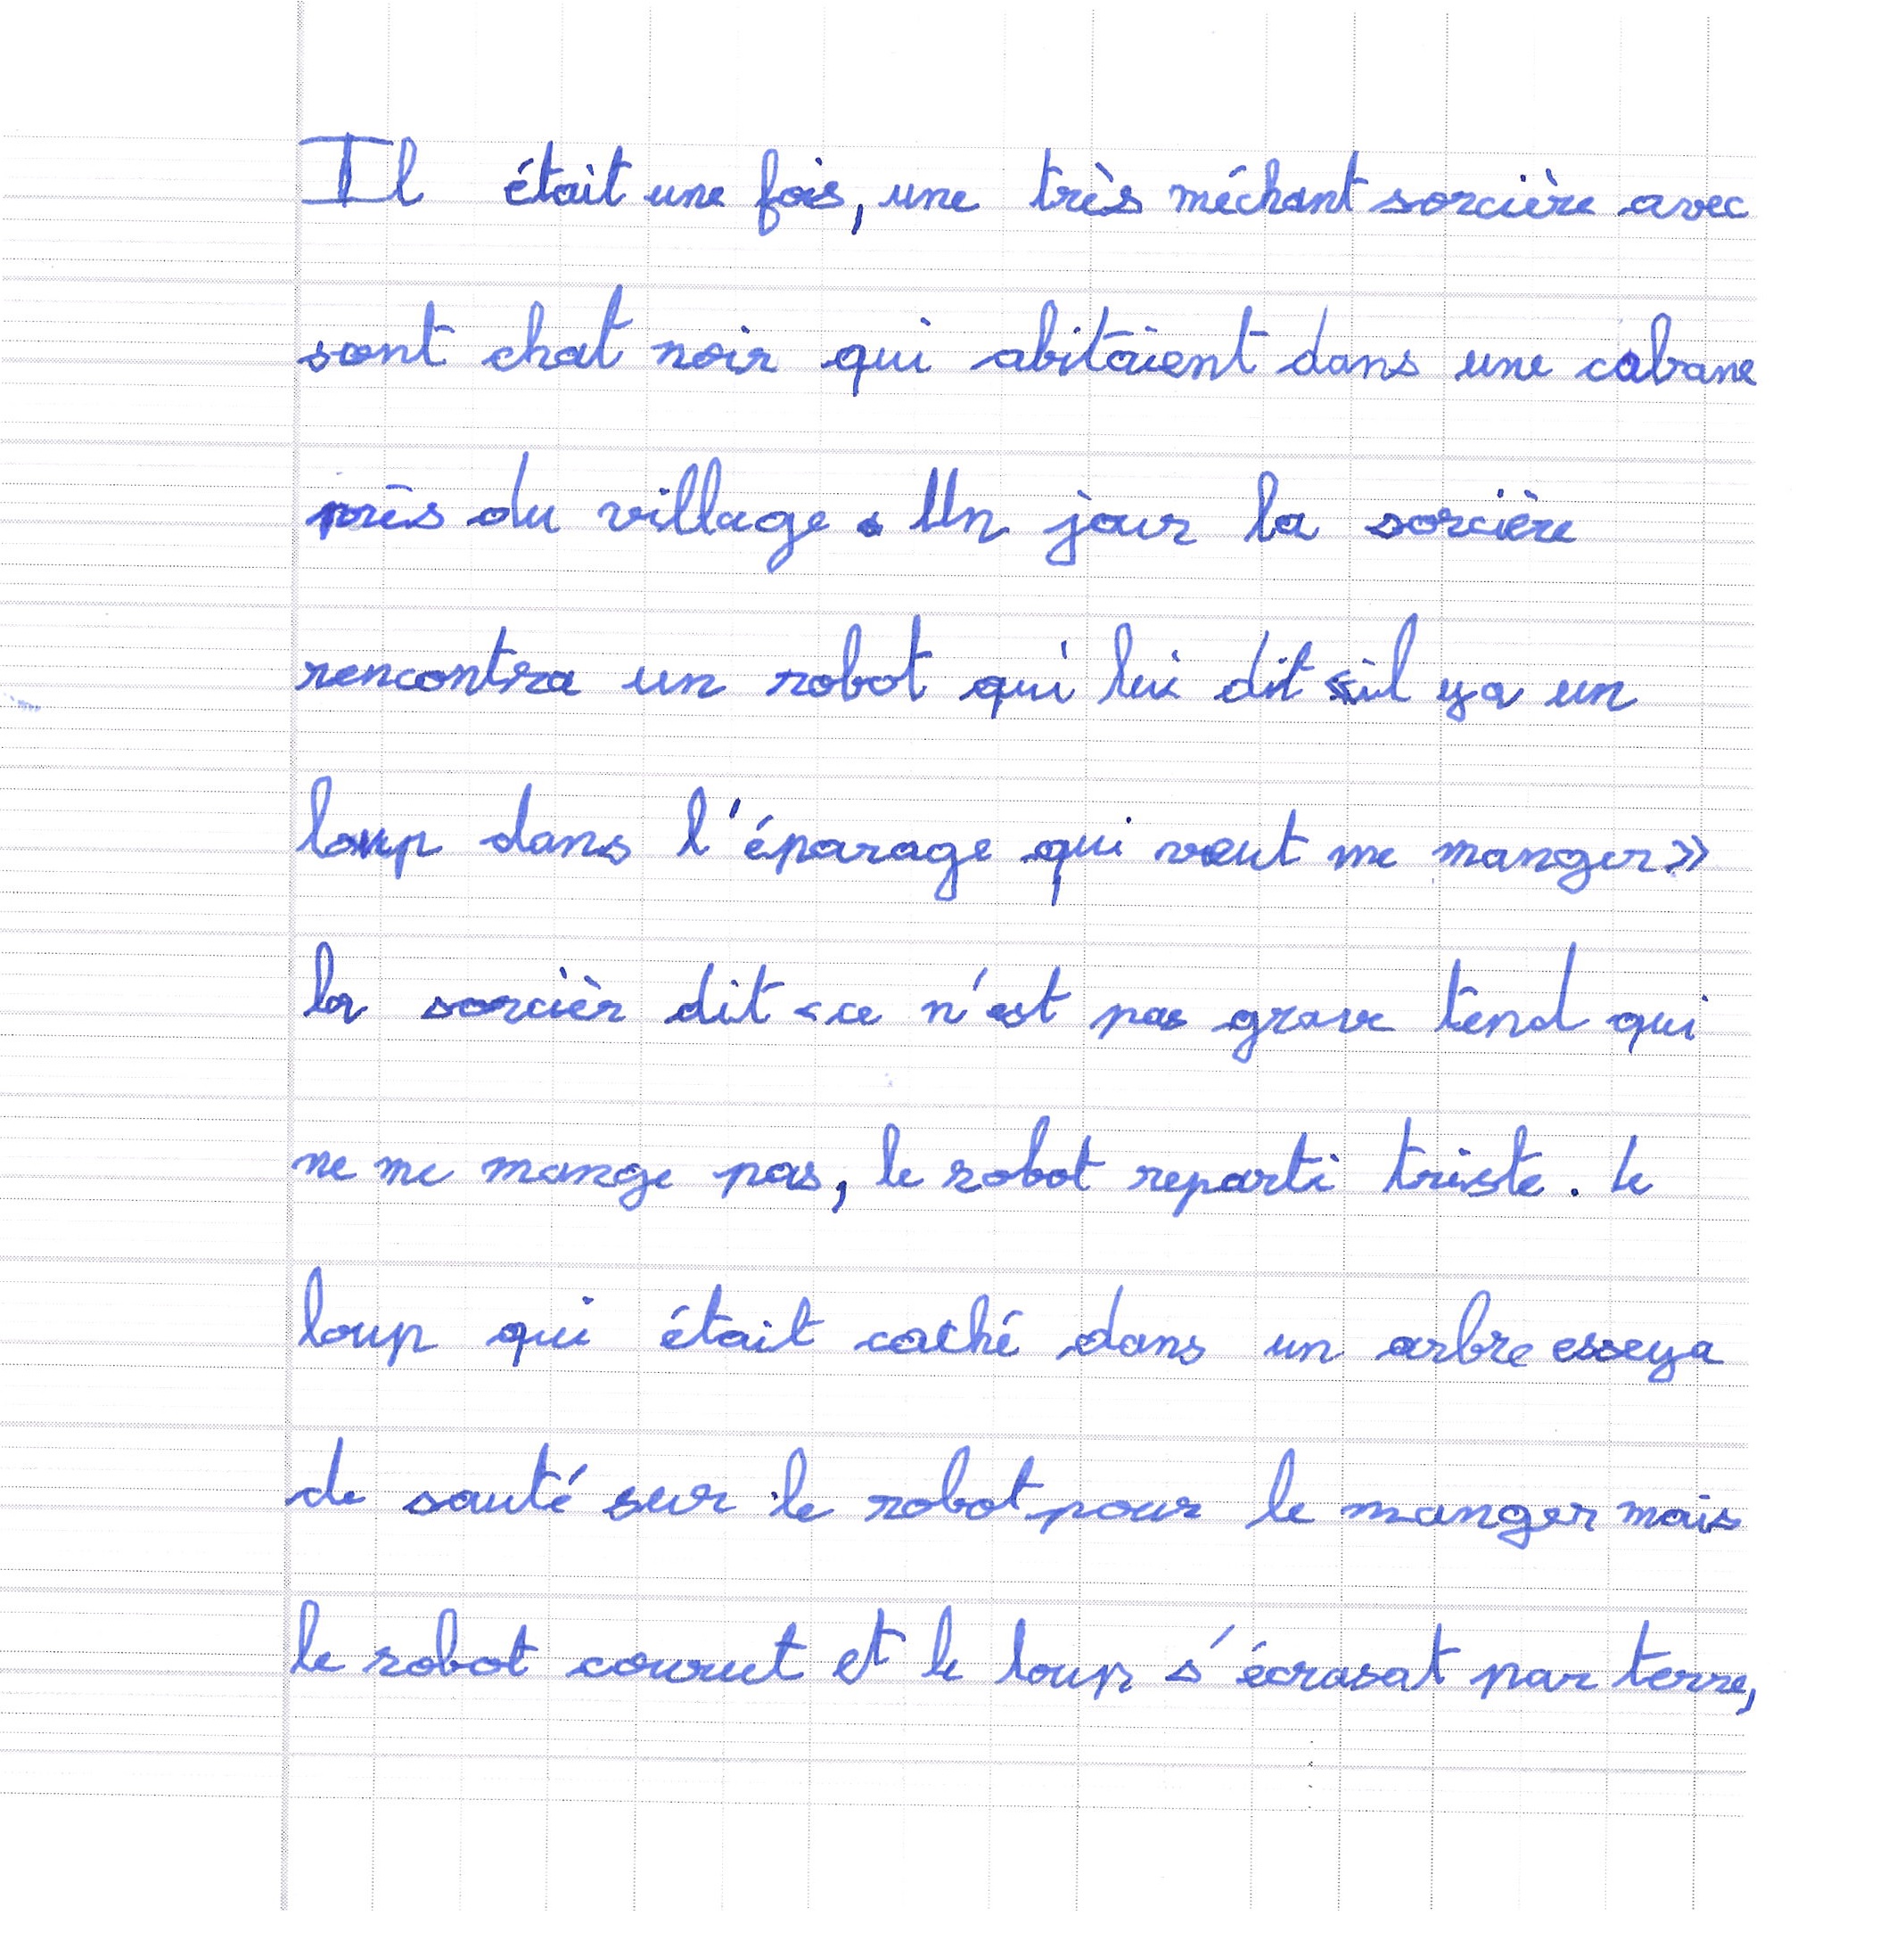 Il était une fois, une très méchant sorcière avec
sont chat noir qui abitaient dans une cabane
près du village. Un jour la sorcière
rencontra un robot qui lui dit « il y a un
loup dans l'éparage qui veut me manger »
la sorcièr dit « ce n'est pas grave tend qui
ne me mange pas, le robot reparti triste. le
loup qui était caché dans un arbre esseya
de sauté sur le robot pour le manger mais
le robot courut et le loup s'écrasat par terre,